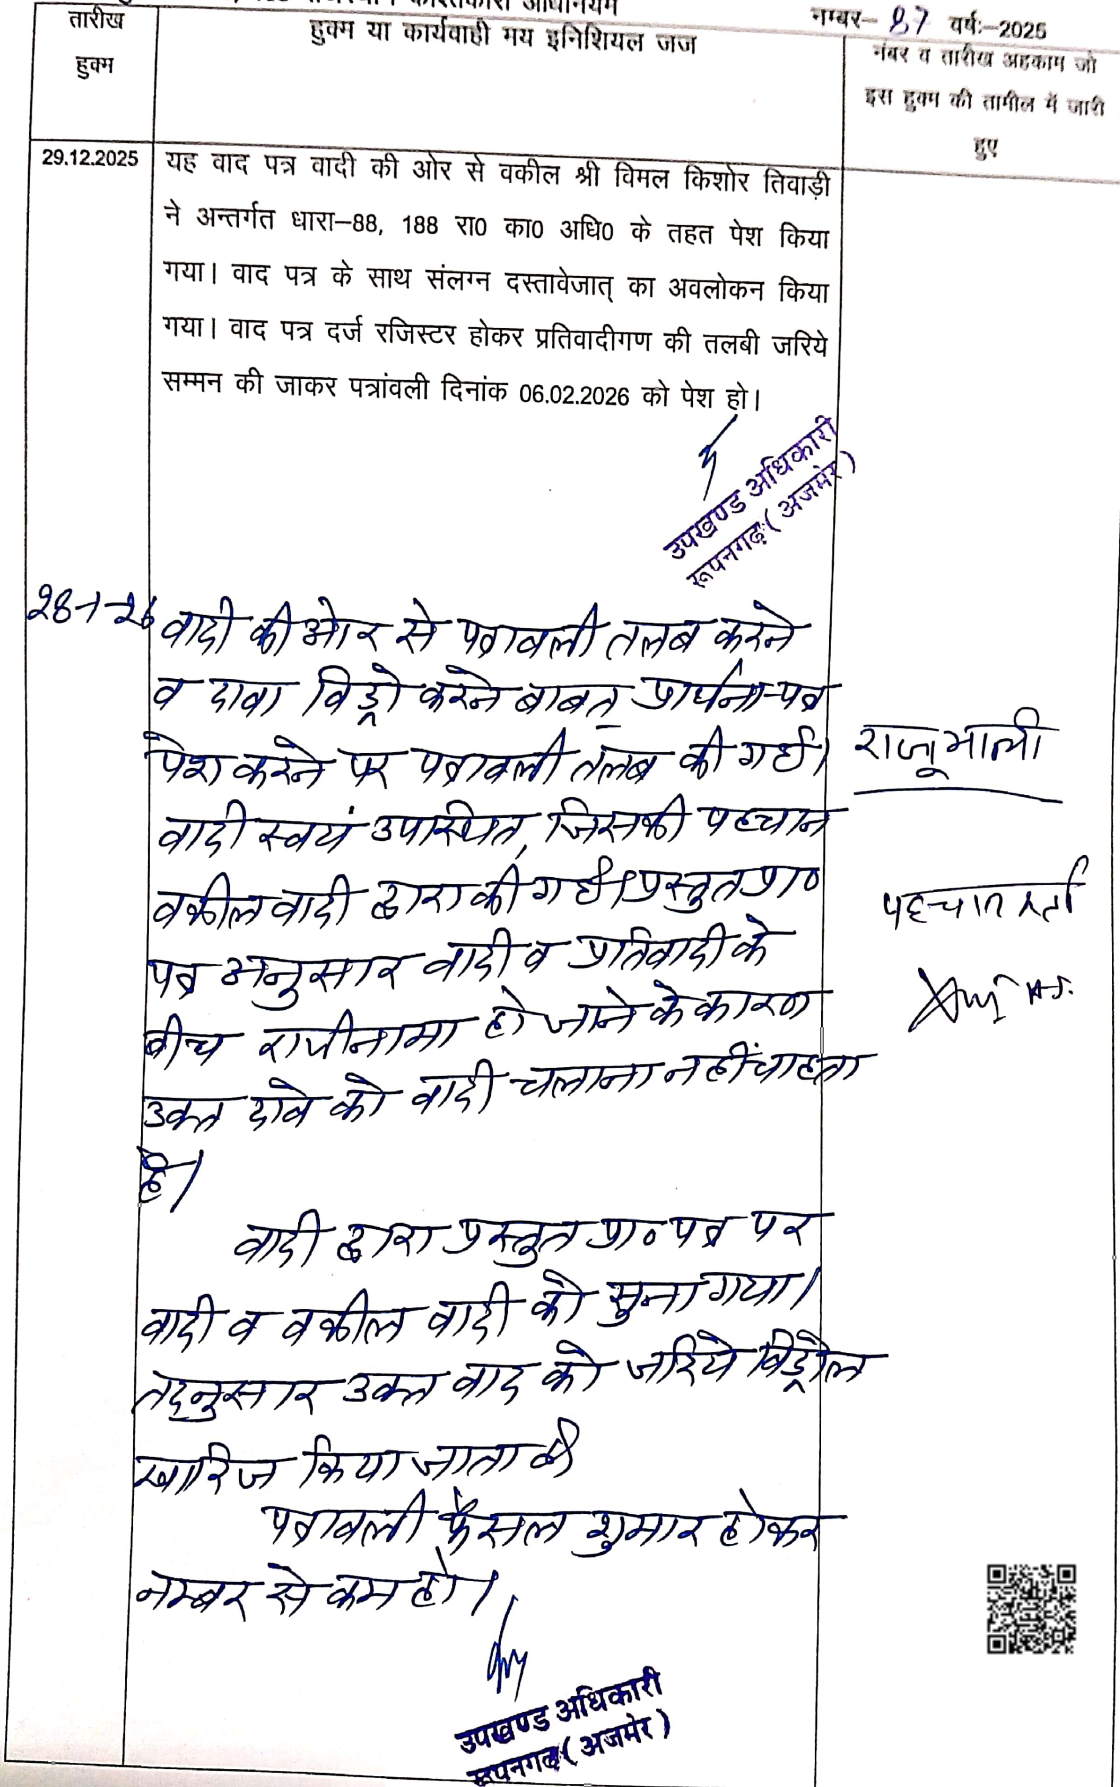 नम्बर- 87 वर्ष:-2025
तारीख हुक्म
हुक्म या कार्यवाही मय इनिशियल जज
नंबर व तारीख अहकाम जो
इस हुक्म की तामील में जारी
हुए
29.12.2025
यह वाद पत्र वादी की ओर से वकील श्री विमल किशोर तिवाड़ी
ने अन्तर्गत धारा-88, 188 रा0 का0 अधि0 के तहत पेश किया
गया। वाद पत्र के साथ संलग्न दस्तावेजात् का अवलोकन किया
गया। वाद पत्र दर्ज रजिस्टर होकर प्रतिवादीगण की तलबी जरिये
सम्मन की जाकर पत्रांवली दिनांक 06.02.2026 को पेश हो।
उपखण्ड अधिकारी
रूपनगढ़ (अजमेर)
28-1-26 वादी की ओर से पत्रावली तलब करने
व दावा विड्रो करने बाबत् प्रार्थना-पत्र
पेश करने पर पत्रावली तलब की गई।
वादी स्वयं उपस्थित, जिसकी पहचान
वकील वादी द्वारा की गई। प्रस्तुत प्रा०
पत्र अनुसार वादी व प्रतिवादी के
बीच राजीनामा हो जाने के कारण
उक्त दावे को वादी चलाना नहीं चाहता
है।
राजू माली
पहचान कर्ता
वादी द्वारा प्रस्तुत प्रा० पत्र पर
वादी व वकील वादी को सुना गया।
तद्नुसार उक्त वाद को जरिये विड्रोल
खारिज किया जाता है
पत्रावली फैसल शुमार होकर
नम्बर से कम हो।
उपखण्ड अधिकारी
रूपनगढ़ (अजमेर)